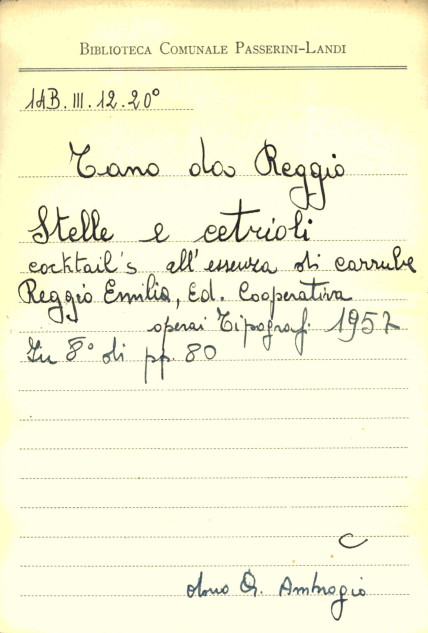 BIBLIOTECA COMUNALE PASSERINI-LANDI
14B. III. 12. 20°
Tano da Reggio
Stelle e cetrioli
cocktail's all'essenza di carrube
Reggio Emilia, Ed. Cooperativa
operai Tipografi 1957
In 8° di pp. 80
C
dono Q. Ambrogio